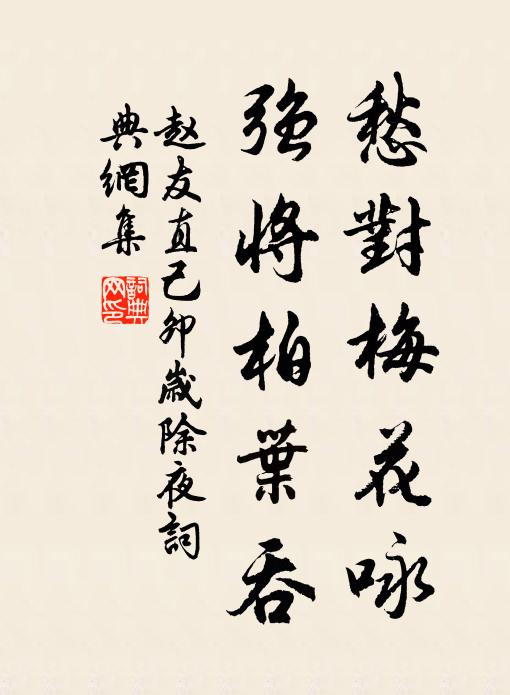 愁對梅花咏
強將柏葉吞
赵友直己卯嵗除夜詞
典網集
詞典
网印